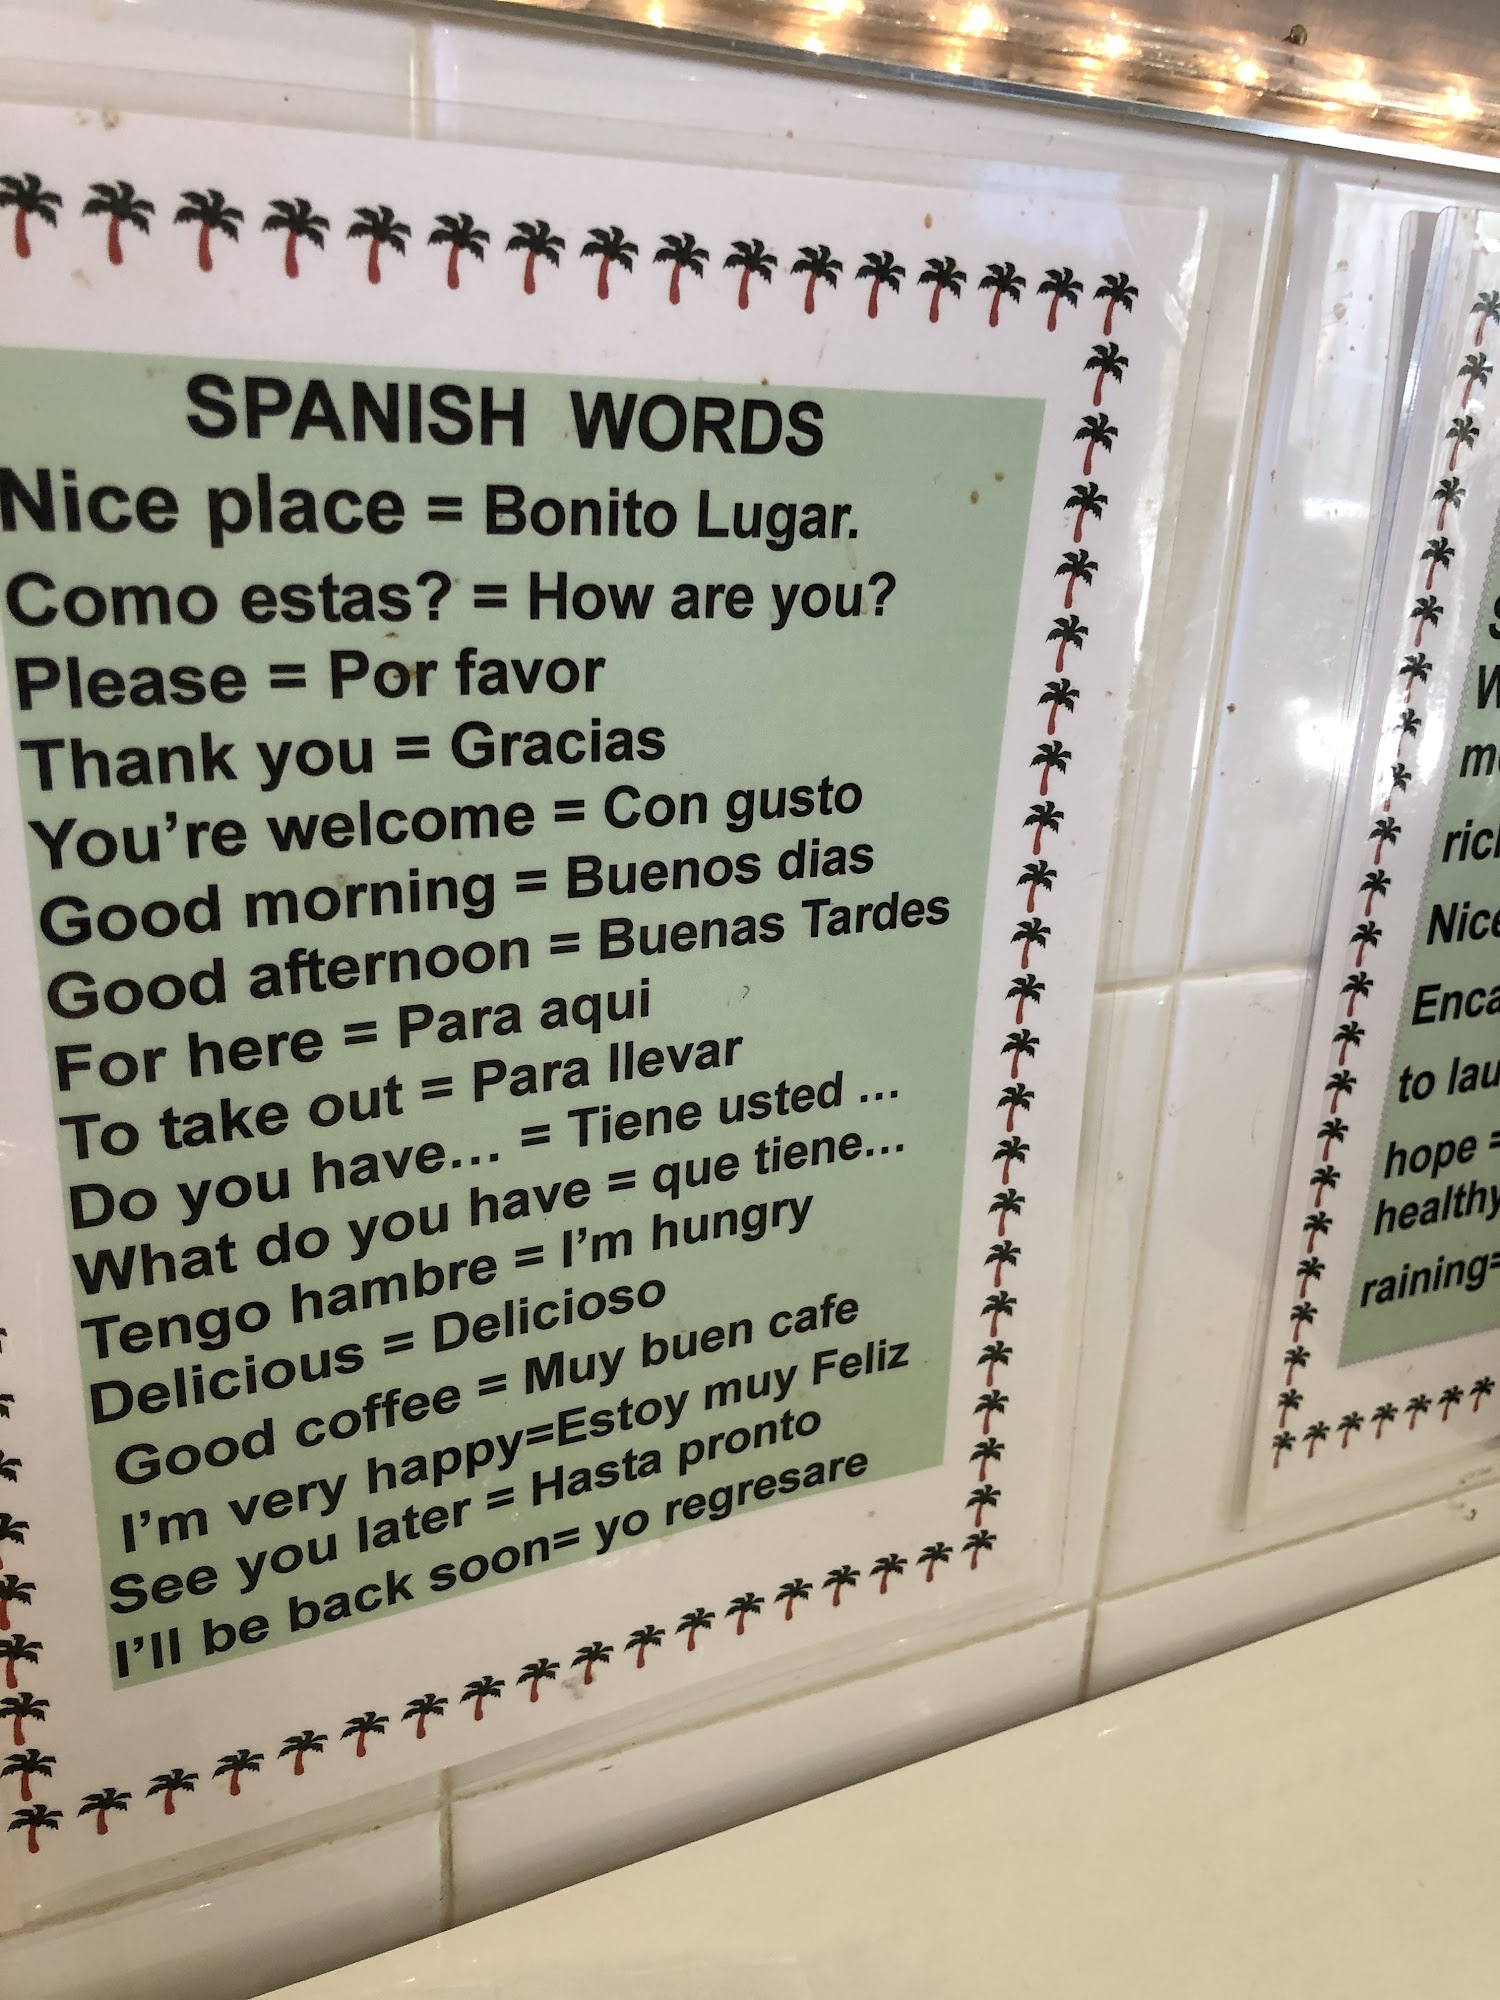 SPANISH WORDS
Nice place = Bonito Lugar.
Como estas? = How are you?
Please = Por favor
Thank you = Gracias
You're welcome = Con gusto
Good morning = Buenos dias
Good afternoon = Buenas Tardes
For here = Para aqui
To take out = Para llevar
Do you have... = Tiene usted ...
What do you have = que tiene...
Tengo hambre = I'm hungry
Delicious = Delicioso
Good coffee = Muy buen cafe
I'm very happy=Estoy muy Feliz
See you later = Hasta pronto
I'll be back soon= yo regresare
Nice
to
hope =
healthy
raining=